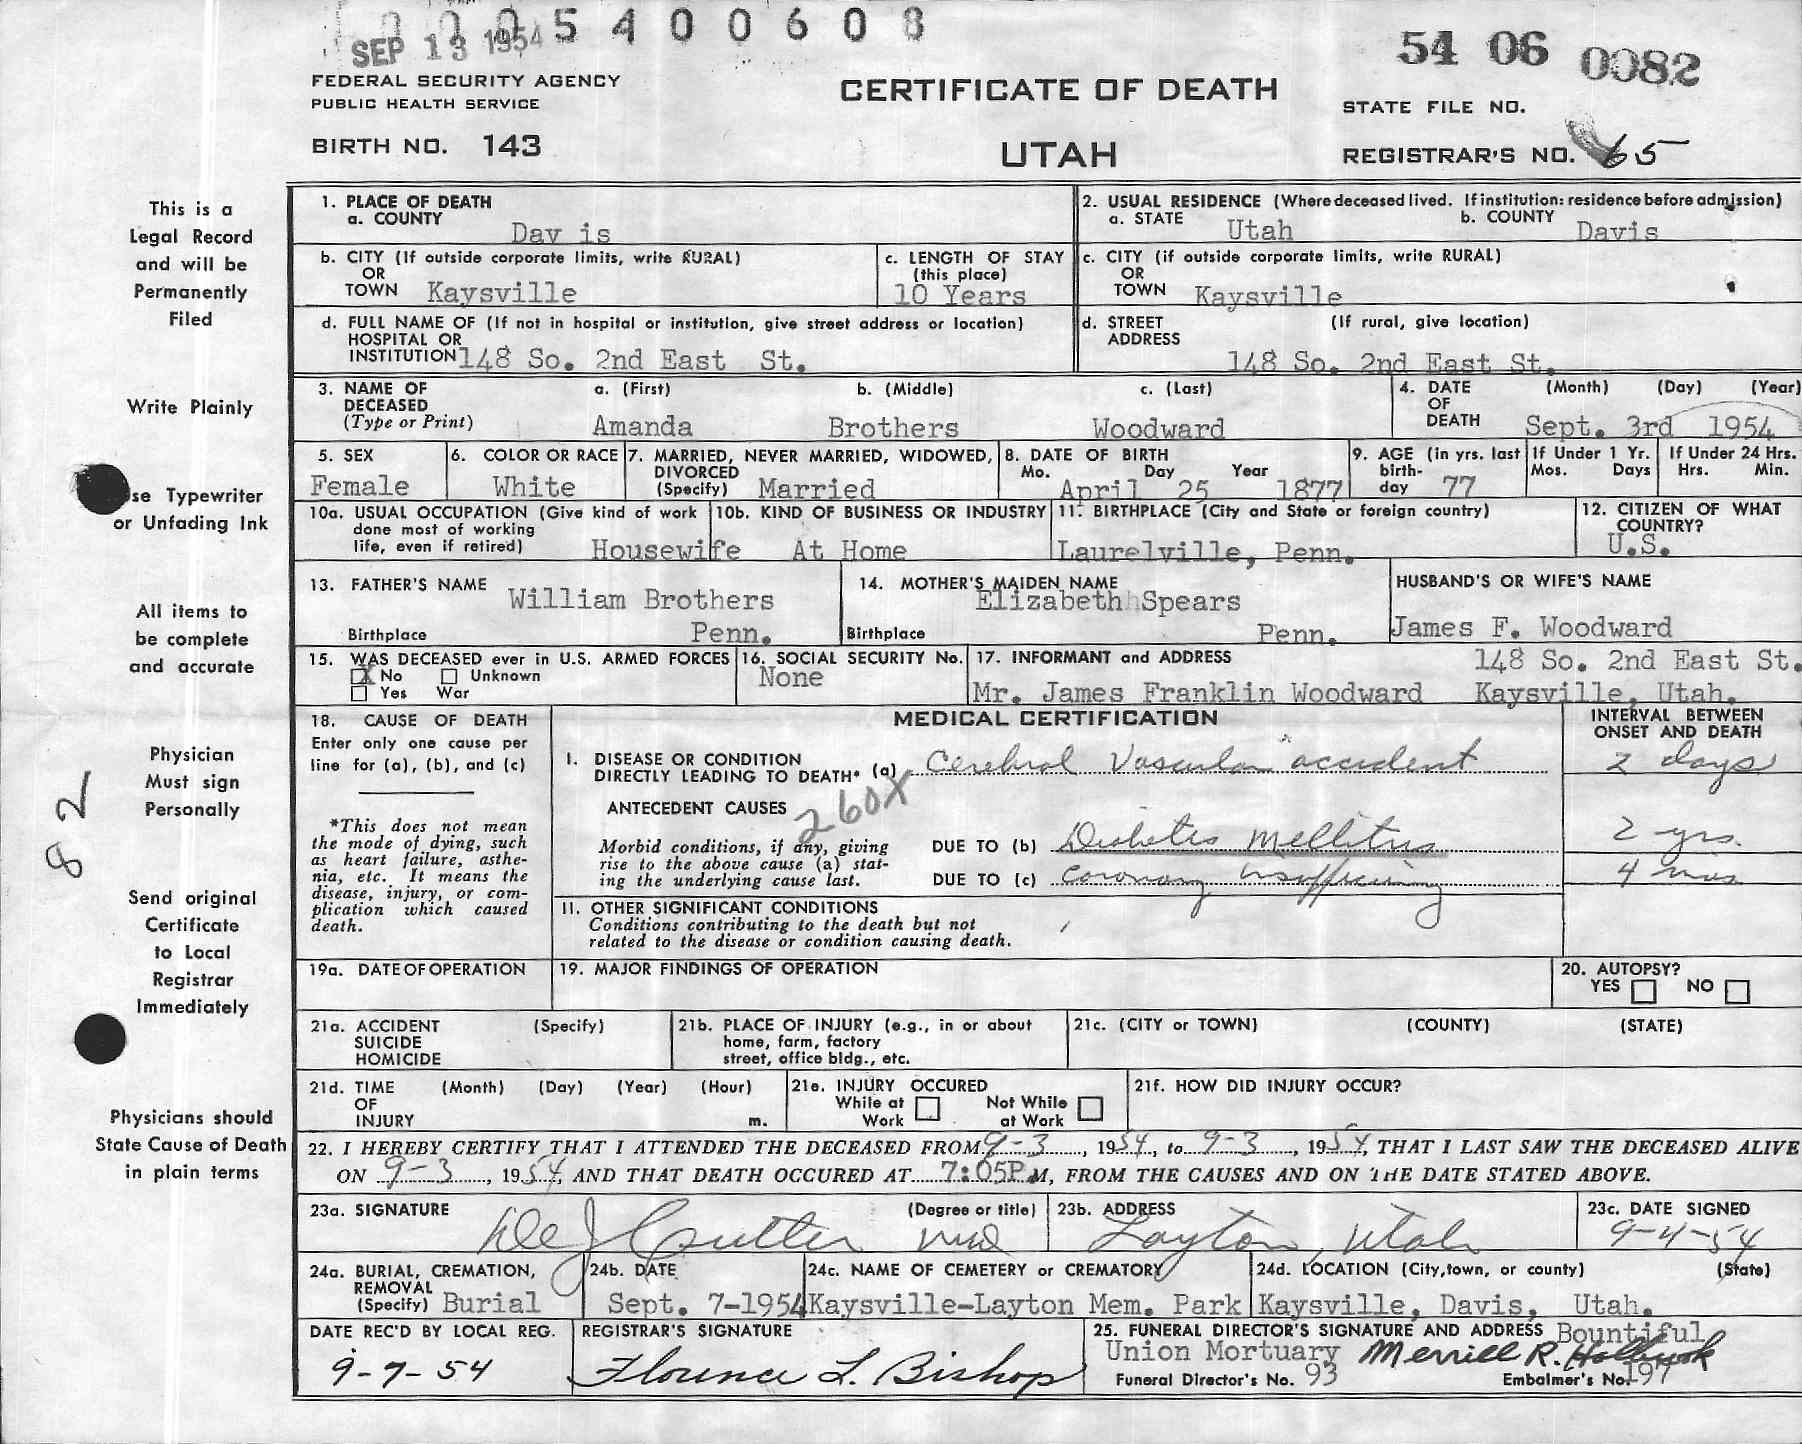 0005400608
SEP 13 1954
54 06 0082
FEDERAL SECURITY AGENCY
PUBLIC HEALTH SERVICE
CERTIFICATE OF DEATH
STATE FILE NO.
BIRTH NO. 143
UTAH
REGISTRAR'S NO. 65
This is a
Legal Record
and will be
Permanently
Filed
Write Plainly
se Typewriter
or Unfading Ink
All items to
be complete
and accurate
Physician
Must sign
Personally
82
Send original
Certificate
to Local
Registrar
Immediately
Physicians should
State Cause of Death
in plain terms
1. PLACE OF DEATH
a. COUNTY Dav is
2. USUAL RESIDENCE (Where deceased lived. If institution: residence before admission)
a. STATE Utah b. COUNTY Davis
b. CITY (If outside corporate limits, write RURAL)
OR
TOWN Kaysville
c. LENGTH OF STAY
(this place)
10 Years
c. CITY (if outside corporate limits, write RURAL)
OR
TOWN Kaysville
d. FULL NAME OF (If not in hospital or institution, give street address or location)
HOSPITAL OR
INSTITUTION 148 So. 2nd East St.
d. STREET (If rural, give location)
ADDRESS
148 So. 2nd East St.
3. NAME OF a. (First) b. (Middle) c. (Last)
DECEASED
(Type or Print) Amanda Brothers Woodward
4. DATE (Month) (Day) (Year)
OF
DEATH Sept. 3rd 1954
5. SEX
Female
6. COLOR OR RACE
White
7. MARRIED, NEVER MARRIED, WIDOWED,
DIVORCED
(Specify) Married
8. DATE OF BIRTH
Mo. Day Year
April 25 1877
9. AGE (in yrs. last
birth-
day 77
If Under 1 Yr.
Mos. Days
If Under 24 Hrs.
Hrs. Min.
10a. USUAL OCCUPATION (Give kind of work
done most of working
life, even if retired) Housewife
10b. KIND OF BUSINESS OR INDUSTRY
At Home
11. BIRTHPLACE (City and State or foreign country)
Laurelville, Penn.
12. CITIZEN OF WHAT
COUNTRY?
U.S.
13. FATHER'S NAME William Brothers
Birthplace Penn.
14. MOTHER'S MAIDEN NAME
Elizabeth Spears
Birthplace Penn.
HUSBAND'S OR WIFE'S NAME
James F. Woodward
15. WAS DECEASED ever in U.S. ARMED FORCES
X No Unknown
Yes War
16. SOCIAL SECURITY No.
None
17. INFORMANT and ADDRESS 148 So. 2nd East St.
Mr. James Franklin Woodward Kaysville, Utah.
18. CAUSE OF DEATH
Enter only one cause per
line for (a), (b), and (c)
*This does not mean
the mode of dying, such
as heart failure, asthe-
nia, etc. It means the
disease, injury, or com-
plication which caused
death.
MEDICAL CERTIFICATION
INTERVAL BETWEEN
ONSET AND DEATH
I. DISEASE OR CONDITION
DIRECTLY LEADING TO DEATH* (a) Cerebral Vascular accident 2 days
ANTECEDENT CAUSES 260X
Morbid conditions, if any, giving
rise to the above cause (a) stat-
ing the underlying cause last.
DUE TO (b) Diabetes Mellitus 2 yrs.
DUE TO (c) Coronary insufficiency 4 mos
II. OTHER SIGNIFICANT CONDITIONS
Conditions contributing to the death but not
related to the disease or condition causing death.
19a. DATE OF OPERATION
19. MAJOR FINDINGS OF OPERATION
20. AUTOPSY?
YES NO
21a. ACCIDENT (Specify)
SUICIDE
HOMICIDE
21b. PLACE OF INJURY (e.g., in or about
home, farm, factory
street, office bldg., etc.
21c. (CITY or TOWN) (COUNTY) (STATE)
21d. TIME (Month) (Day) (Year) (Hour)
OF
INJURY m.
21e. INJURY OCCURED
While at Work
Not While at Work
21f. HOW DID INJURY OCCUR?
22. I HEREBY CERTIFY THAT I ATTENDED THE DECEASED FROM 9-3, 1954, to 9-3, 1954, THAT I LAST SAW THE DECEASED ALIVE
ON 9-3, 1954, AND THAT DEATH OCCURED AT 7:05P M, FROM THE CAUSES AND ON THE DATE STATED ABOVE.
23a. SIGNATURE (Degree or title)
Cutler MD
23b. ADDRESS
Layton, Utah
23c. DATE SIGNED
9-4-54
24a. BURIAL, CREMATION,
REMOVAL
(Specify) Burial
24b. DATE
Sept. 7-1954
24c. NAME OF CEMETERY or CREMATORY
Kaysville-Layton Mem. Park
24d. LOCATION (City,town, or county) (State)
Kaysville, Davis, Utah.
DATE REC'D BY LOCAL REG.
9-7-54
REGISTRAR'S SIGNATURE
Florence L. Bishop
25. FUNERAL DIRECTOR'S SIGNATURE AND ADDRESS Bountiful
Union Mortuary Merrill R. Holbrook
Funeral Director's No. 93 Embalmer's No. 197